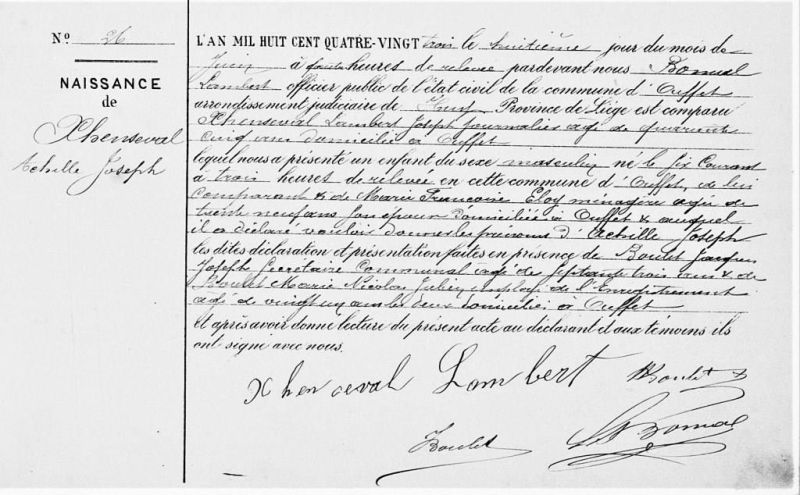 N° 26
NAISSANCE
de
Xhenseval
Achille Joseph
L'AN MIL HUIT CENT QUATRE-VINGT trois le huitième jour du mois de
Juin à quatre heures de relevée pardevant nous Bomal
Lambert officier public de l'état civil de la commune d'Ouffet
arrondissement judiciaire de Huy Province de Liége est comparu
Xhenseval Lambert Joseph journalier agé de quarante
cinq ans domicilié à Ouffet
lequel nous a présenté un enfant du sexe masculin né le six Courant
à trois heures de relevée en cette commune d'Ouffet, de lui
comparant & de Marie Françoise Eloy ménagère agée de
trente neuf ans son épouse domiciliée à Ouffet & auquel
il a déclaré vouloir donner les prénoms d'Achille Joseph
les dites déclaration et présentation faites en présence de Boulet Jacques
Joseph Secrétaire Communal agé de septante trois ans & de
Boulet Marie Nicolas employé de l'Enregistrement
agé de vingt un ans les deux domiciliés à Ouffet
et après avoir donné lecture du présent acte au déclarant et aux témoins ils
ont signé avec nous.
Xhenceval Lambert Boulet
Boulet Bomal